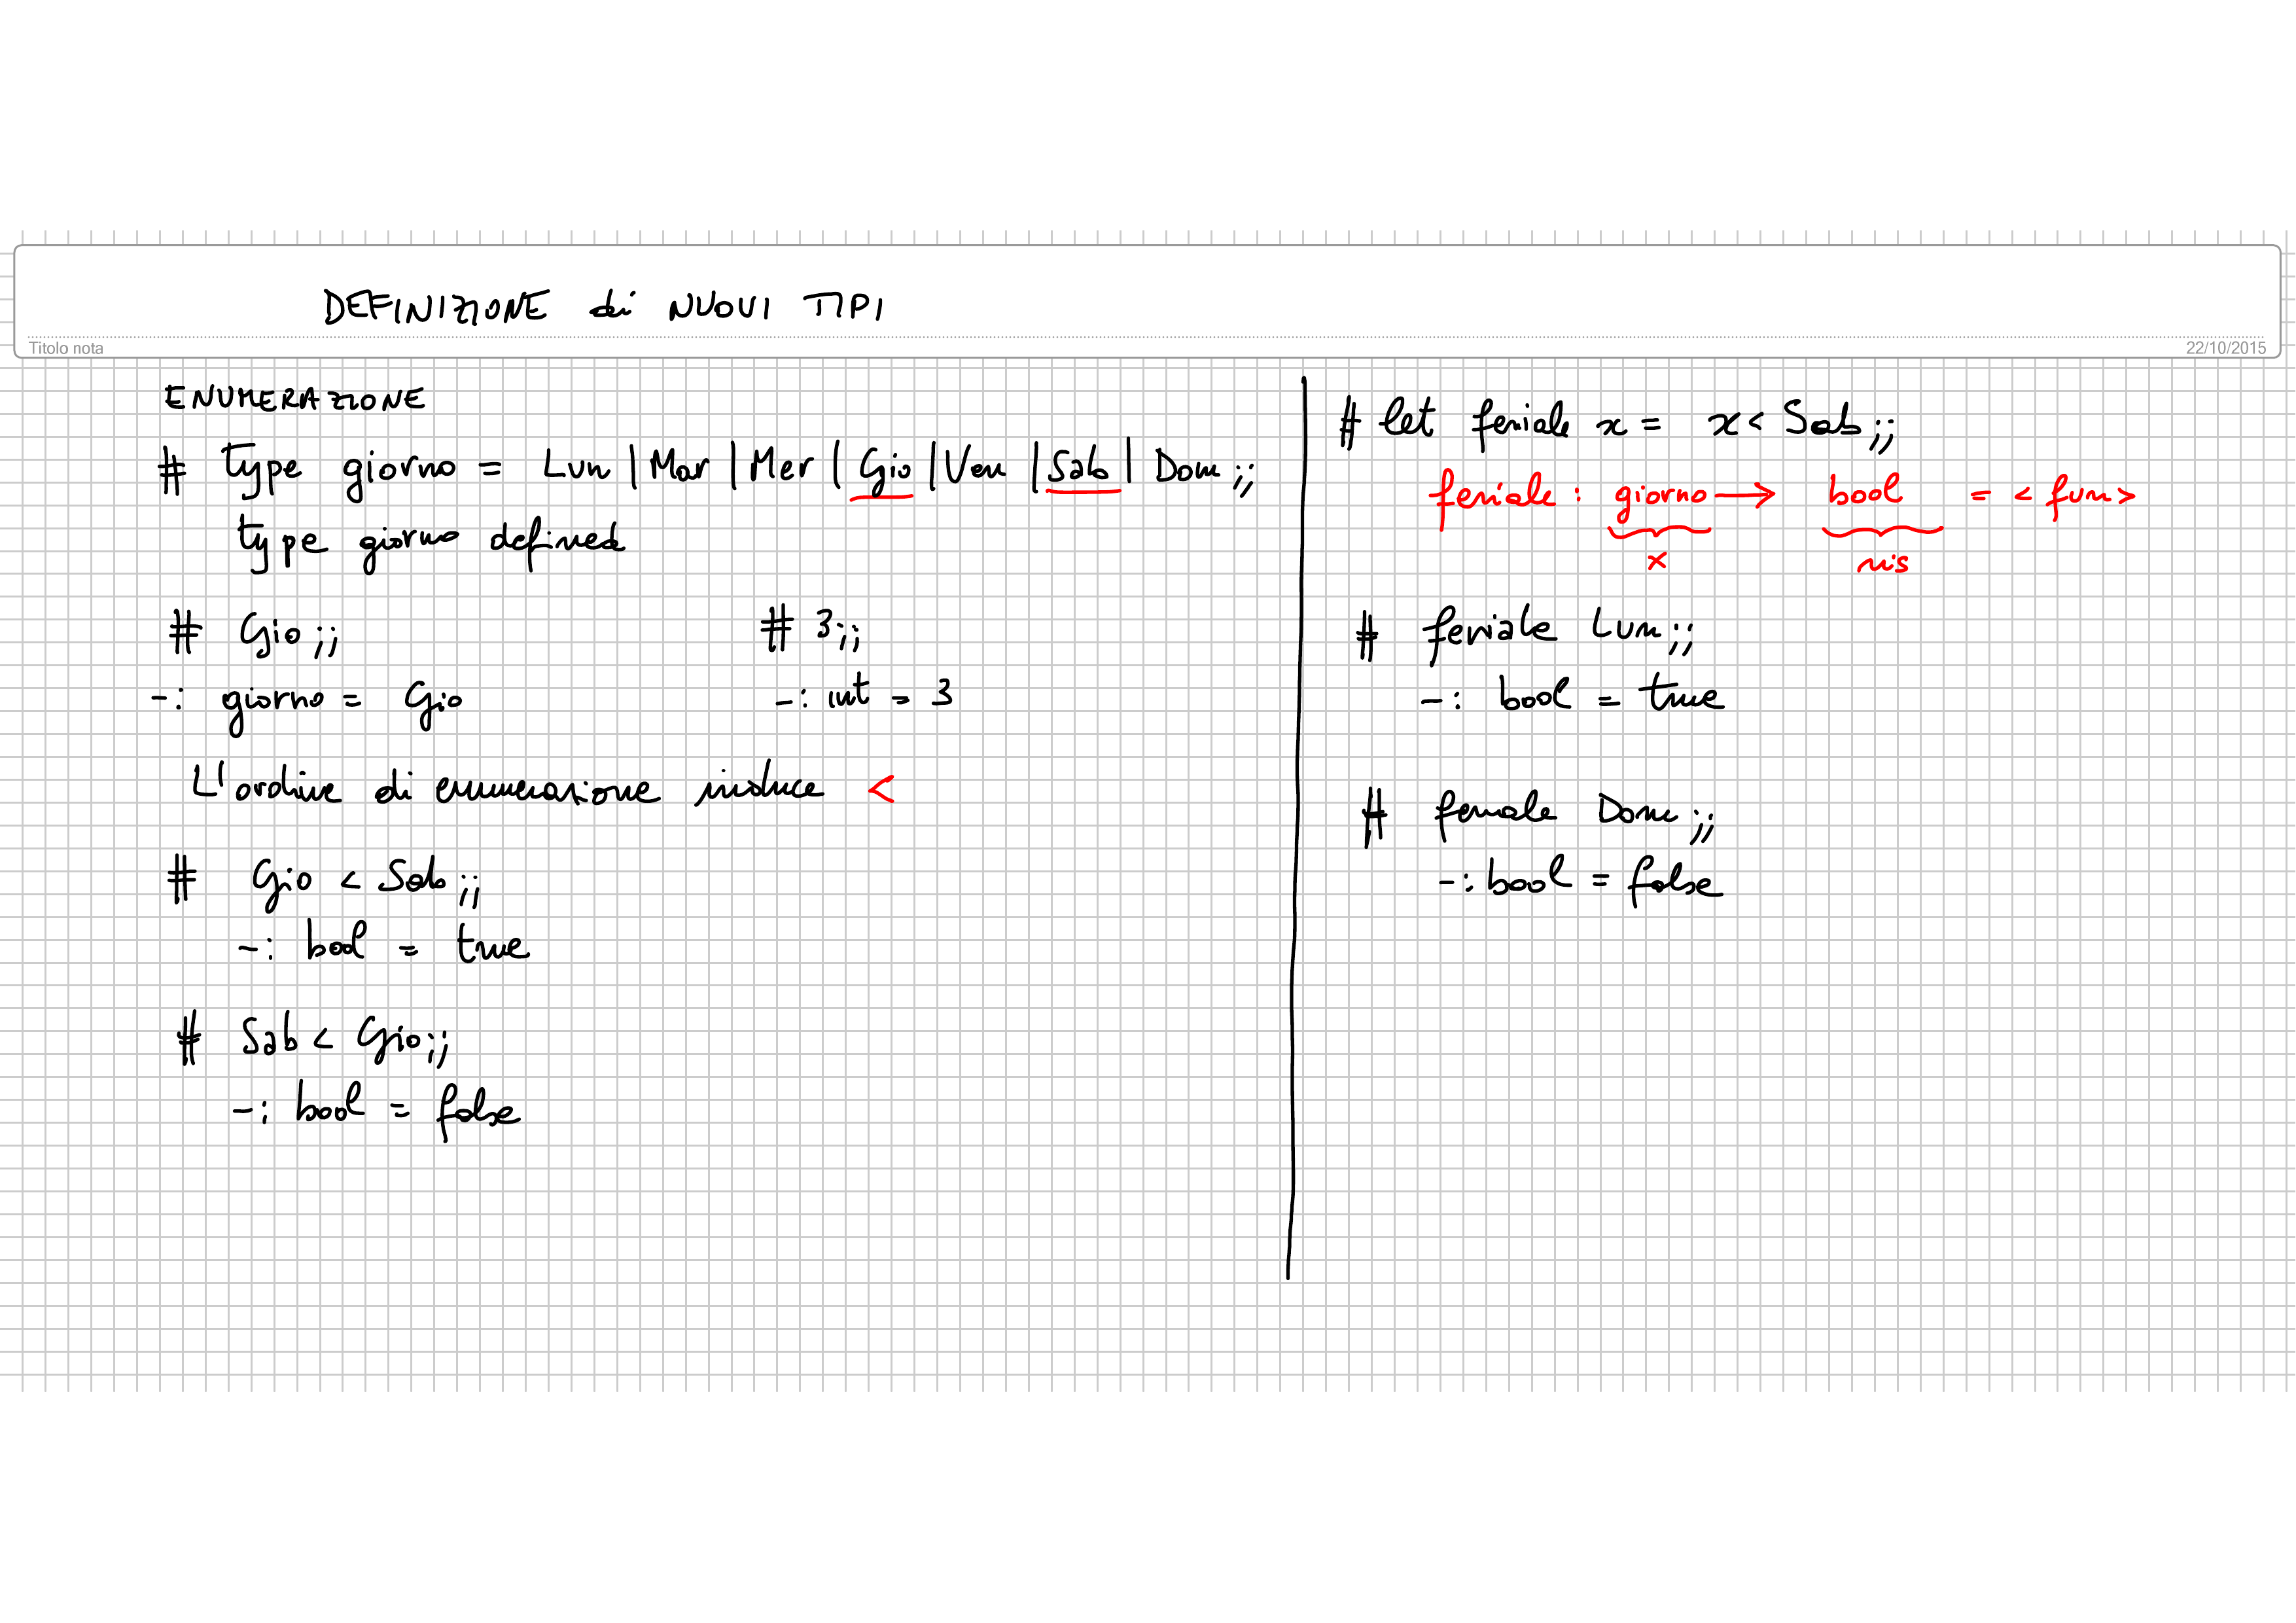 DEFINIZIONE di NUOVI TIPI
Titolo nota
22/10/2015
ENUMERAZIONE
# type giorno = Lun | Mar | Mer | Gio | Ven | Sab | Dom ;;
type giorno defined
# Gio ;;
-: giorno = Gio
# 3;;
-: int = 3
L'ordine di enumerazione induce <
# Gio < Sab ;;
-: bool = true
# Sab < Gio ;;
-: bool = false
# let feriale x = x < Sab ;;
feriale : giorno → bool = < fun >
x ris
# feriale Lun ;;
-: bool = true
# feriale Dom ;;
-: bool = false